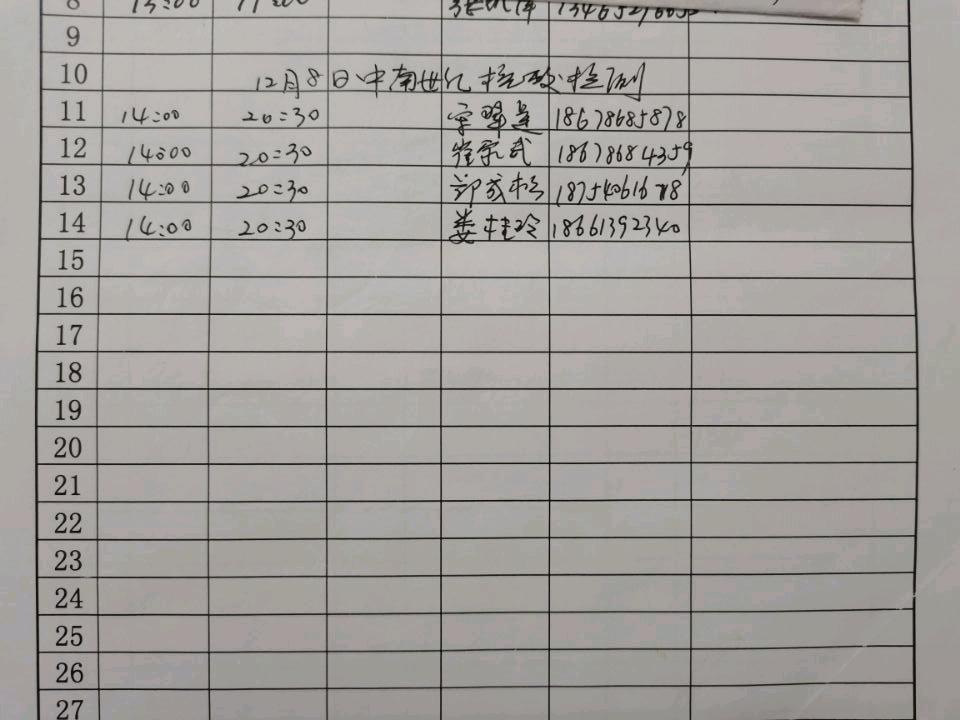 8
9
10 12月8日中南世纪核酸检测
11 14:00 20:30 18678685878
12 14:00 20:30 崔宗武 18678684359
13 14:00 20:30 郑成松 18754061678
14 14:00 20:30 娄桂玲 18661392340
15
16
17
18
19
20
21
22
23
24
25
26
27